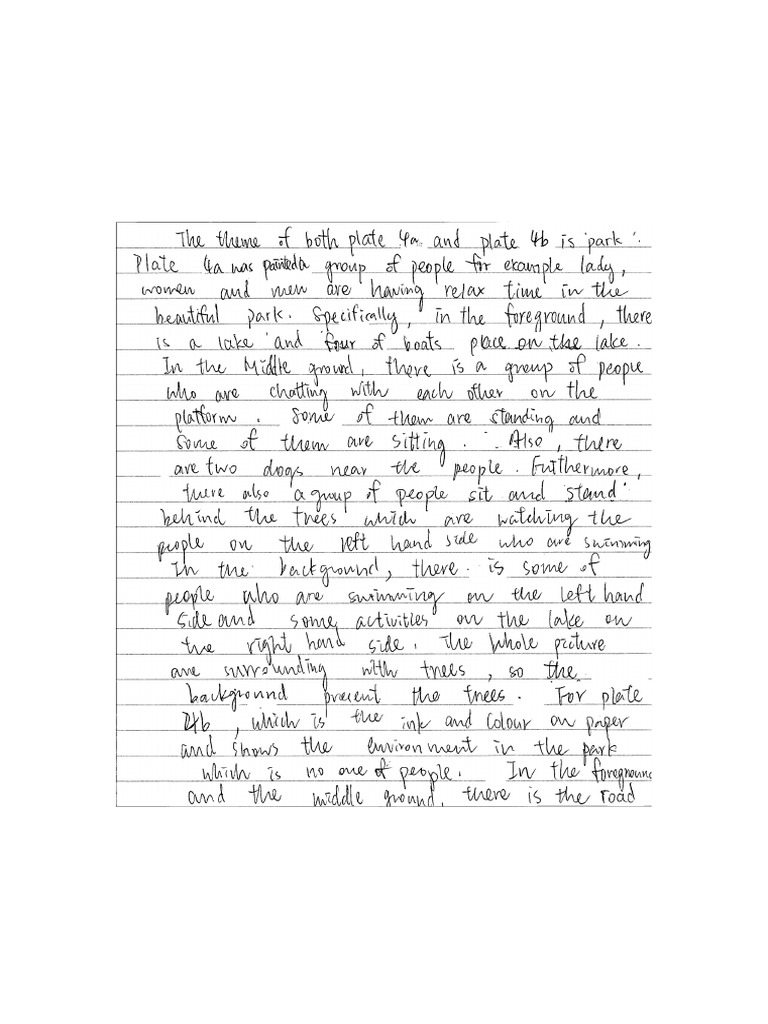 The theme of both plate 4a and plate 4b is park.
Plate 4a was painted a group of people for example lady,
women and men are having relax time in the
beautiful park. Specifically, in the foreground, there
is a lake and four of boats place on the lake.
In the Middle ground, there is a group of people
who are chatting with each other on the
platform. Some of them are standing and
some of them are sitting. Also, there
are two dogs near the people. Furthermore,
there also a group of people sit and stand
behind the trees which are watching the
people on the left hand side who are swimming
In the background, there is some of
people who are swimming on the left hand
side and some activities on the lake on
the right hand side. The whole picture
are surrounding with trees, so the
background present the trees. For plate
4b, which is the ink and colour on paper
and shows the environment in the park
which is no one of people. In the foreground
and the middle ground, there is the road